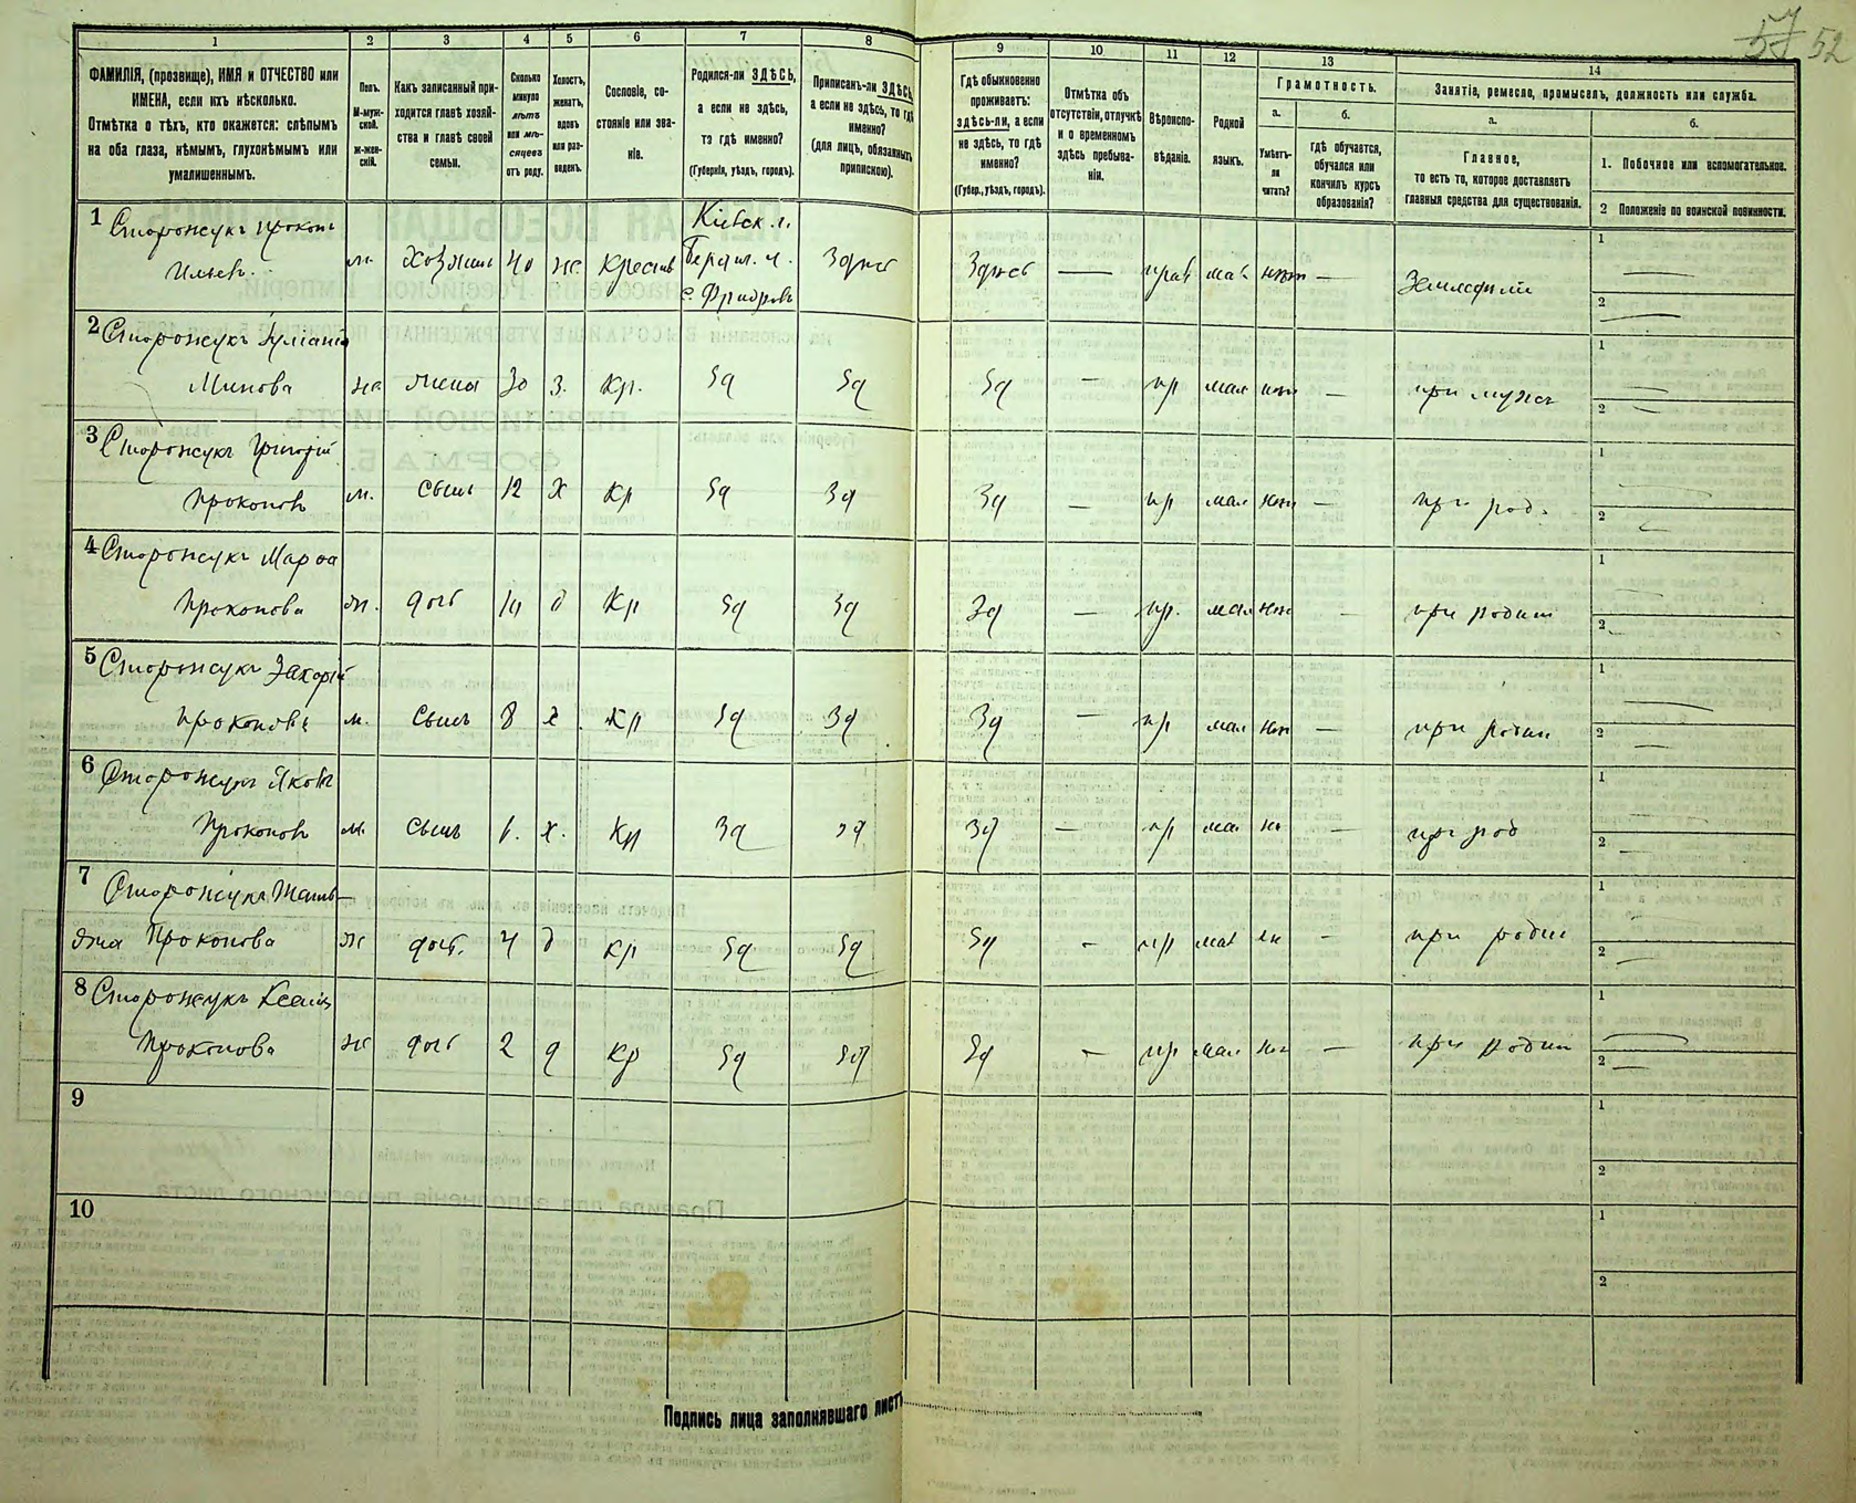 57 52
1 2 3 4 5 6 7 8 9 10 11 12 13 14
ФАМИЛІЯ, (прозвище), ИМЯ и ОТЧЕСТВО или
ИМЕНА, если ихъ нѣсколько.
Отмѣтка о тѣхъ, кто окажется: слѣпымъ
на оба глаза, нѣмымъ, глухонѣмымъ или
умалишеннымъ.
Полъ.
М-муж-
ской.
ж-жен-
скій.
Какъ записанный при-
ходится главѣ хозяй-
ства и главѣ своей
семьи.
Сколько
минуло
лѣтъ
или мѣ-
сяцевъ
отъ роду.
Холостъ,
женатъ,
вдовъ
или раз-
веденъ.
Сословіе, со-
стояніе или зва-
ніе.
Родился-ли ЗДѢСЬ,
а если не здѣсь,
то гдѣ именно?
(Губернія, уѣздъ, городъ).
Приписанъ-ли ЗДѢСЬ,
а если не здѣсь, то гдѣ
именно?
(для лицъ, обязанныхъ
припискою).
Гдѣ обыкновенно
проживаетъ:
здѣсь-ли, а если
не здѣсь, то гдѣ
именно?
(Губер., уѣздъ, городъ).
Отмѣтка объ
отсутствіи, отлучкѣ
и о временномъ
здѣсь пребыва-
ніи.
Вѣроиспо-
вѣданіе.
Родной
языкъ.
Грамотность.
а.
Умѣетъ-
ли
читать?
б.
гдѣ обучается,
обучался или
кончилъ курсъ
образованія?
Занятіе, ремесло, промыселъ, должность или служба.
а.
Главное,
то есть то, которое доставляетъ
главныя средства для существованія.
б.
1. Побочное или вспомогательное.
2 Положеніе по воинской повинности.
1 Сторожукъ Прокопъ Кіевск. г. 1
Ильевъ м. Хозяинъ 40 ж. Крестьян Бердич. у. Здѣсь Здѣсь — прав мал нѣт — Земледѣліе
с. 2
2 Сторожукъ Уліанія 1
Минова ж. жена 30 з. Кр. Зд Зд Зд — пр мал нѣт — при мужѣ 2
3 Сторожукъ Григорій 1
Прокоповъ м. Сынъ 12 х Кр Зд Зд Зд — пр мал нѣт — при род. 2
4 Сторожукъ Марѳа 1
Прокопова ж. дочь д Кр Зд Зд Зд — пр. мал нѣт — при родит 2
5 Сторожукъ Захарій 1
Прокоповъ м. Сынъ 8 х Кр Зд Зд Зд — пр мал нѣт — при родит 2
6 Сторожукъ Яковъ 1
Прокоповъ м. Сынъ х. Кр Зд Зд Зд — пр мал нѣ — при род 2
7 Сторожукъ 1
Прокопова ж дочь. 4 д Кр Зд Зд Зд - пр мал нѣ - при родит 2
8 Сторожукъ Ксенія 1
Прокопова ж дочь 2 д Кр Зд Зд Зд — пр мал нѣт — при родит 2
9 1
2
10 1
2
Подпись лица заполнявшаго листъ